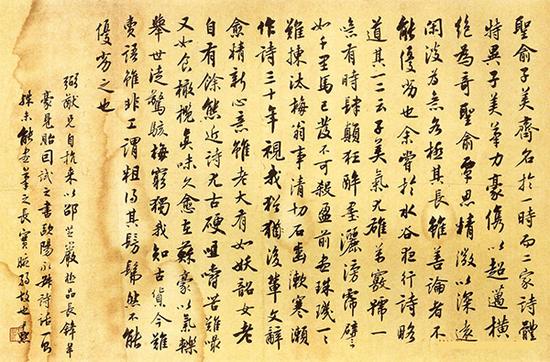 聖俞子美齊名於一時而二家詩體
特異子美筆力豪儁以超邁橫
絕為奇聖俞覃思精微以深遠
閑淡為意各極其長雖善論者不
能優劣也余嘗於水谷夜行詩略
道其一二云子美氣尤雄萬竅號一
噫有時肆顛狂醉墨灑滂霈譬
如千里馬已發不可殺盈前盡珠璣一一
難揀汰梅翁事清切石齒漱寒瀨
作詩三十年視我猶後輩文辭
愈精新心意雖老大有如妖韶女老
自有餘態近詩尤古硬咀嚼苦難嘬
又如食橄欖真味久愈在蘇豪以氣轢
舉世徒驚駭梅窮獨我知古貨今難
賣語雖非工謂粗得其髣髴然不能
優劣之也
弼猷兄自杭來以邵芝巖極品長鋒羊
毫見貽因試之書歐陽永叔詩話一則
殊未能盡筆之長實腕弱故也 尹默